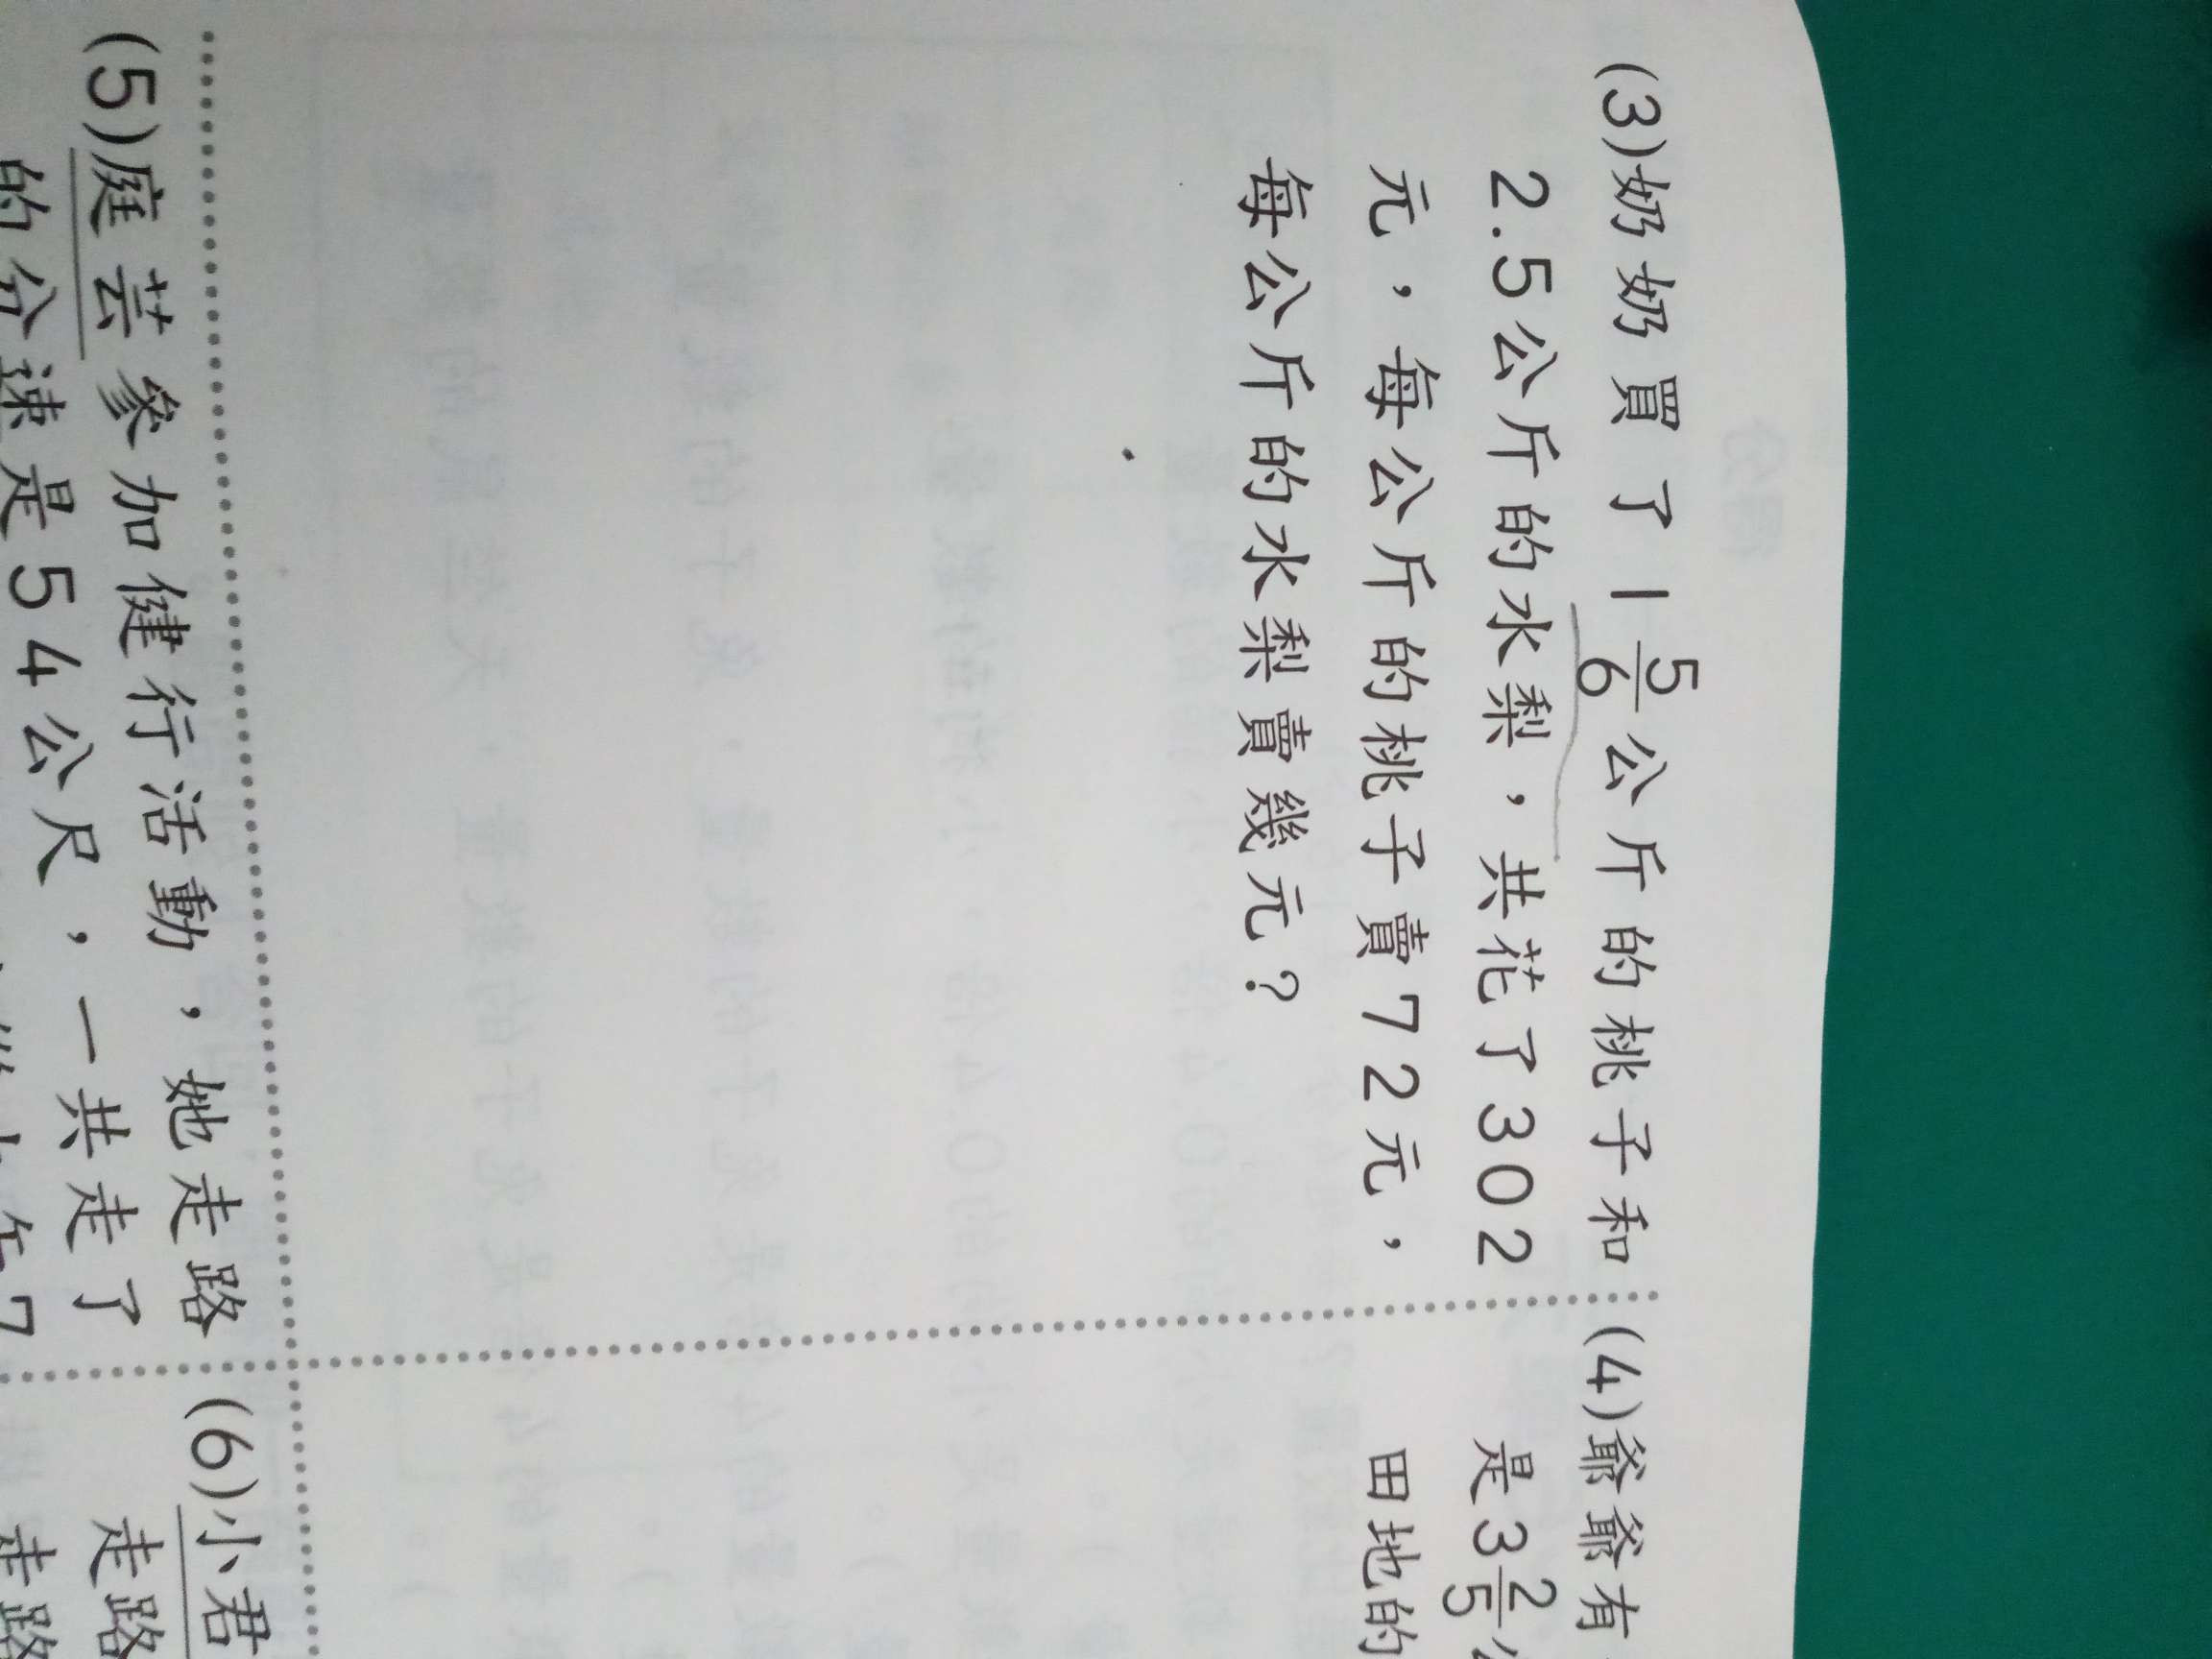 (3)奶奶買了1 5/6公斤的桃子和
2.5公斤的水梨，共花了302
元，每公斤的桃子賣72元，
每公斤的水梨賣幾元？
(4)爺爺有
是3 2/5公
田地的
(5)庭芸參加健行活動，她走路
的分速是54公尺，一共走了
(6)小君
走路